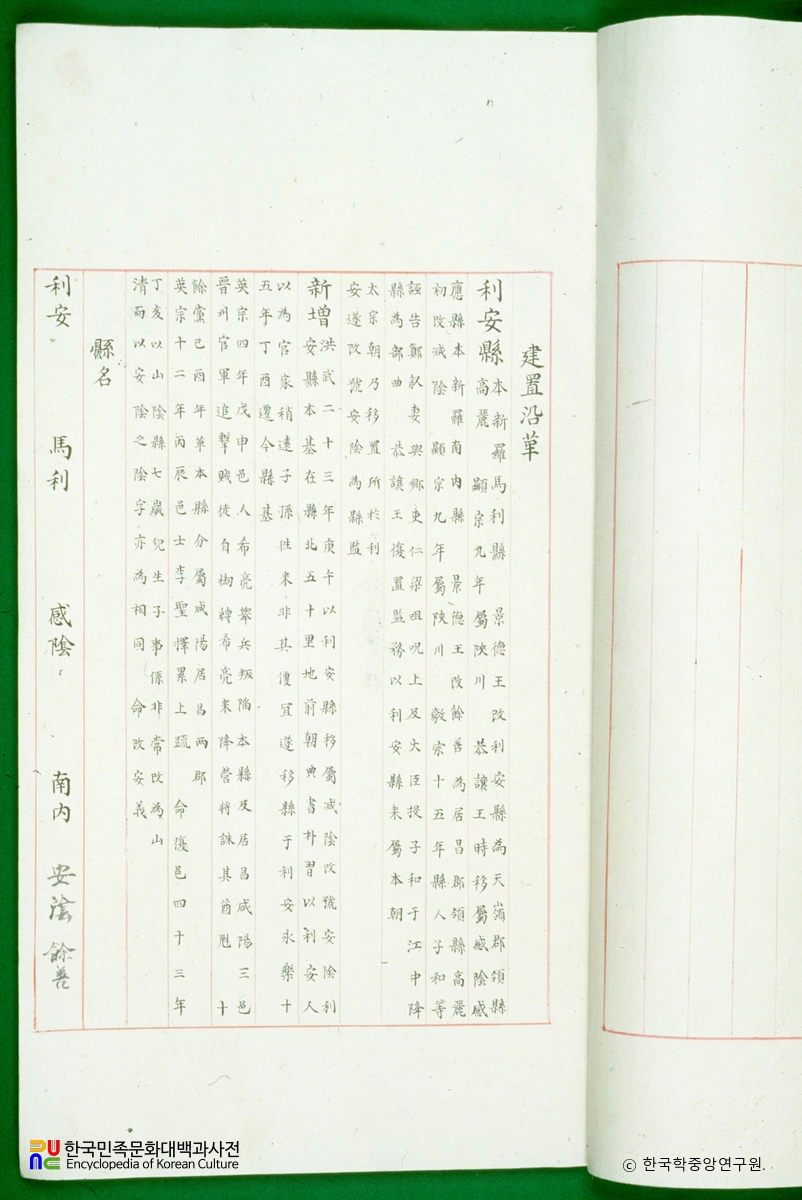 建置沿革
利安縣
本新羅馬利縣 景德王改利安縣為天嶺郡領縣
高麗 顯宗九年屬陜川 恭讓王時移屬感陰感
應縣本新羅南內縣 景德王改餘善為居昌郡領縣高麗
初改減陰 顯宗九年屬陜川 毅宗十五年縣人子和等
誣告鄭叙妻與鄉吏仁梁咀呪上及大臣投子和于江中降
縣為部曲 恭讓王復置監務以利安縣來屬本朝
太宗朝乃移置所於利
安遂改號安陰為縣監
新增
洪武二十三年庚午以利安縣移屬減陰改號安陰利
安縣本基在縣北五十里地前朝典書朴習以利安人
以為官家稍遠子孫徃來非其便冝遂移縣于利安永樂十
五年丁酉還今縣基
英宗四年戊申邑人希亮舉兵叛陷本縣及居昌咸陽三邑
晉州官軍追擊賊徒自縛希亮來降營將誅其酋魁 十
餘黨己酉年革本縣分屬咸陽居昌兩郡
英宗十二年丙辰邑士李聖擇累上疏 命復邑四十三年
丁亥以山陰縣七歲兒生子事係非常改為山
清而以安陰之陰字亦為相同 命改安義
縣名
利安 馬利 感陰 南內 安陰 餘善
한국민족문화대백과사전
Encyclopedia of Korean Culture
© 한국학중앙연구원.